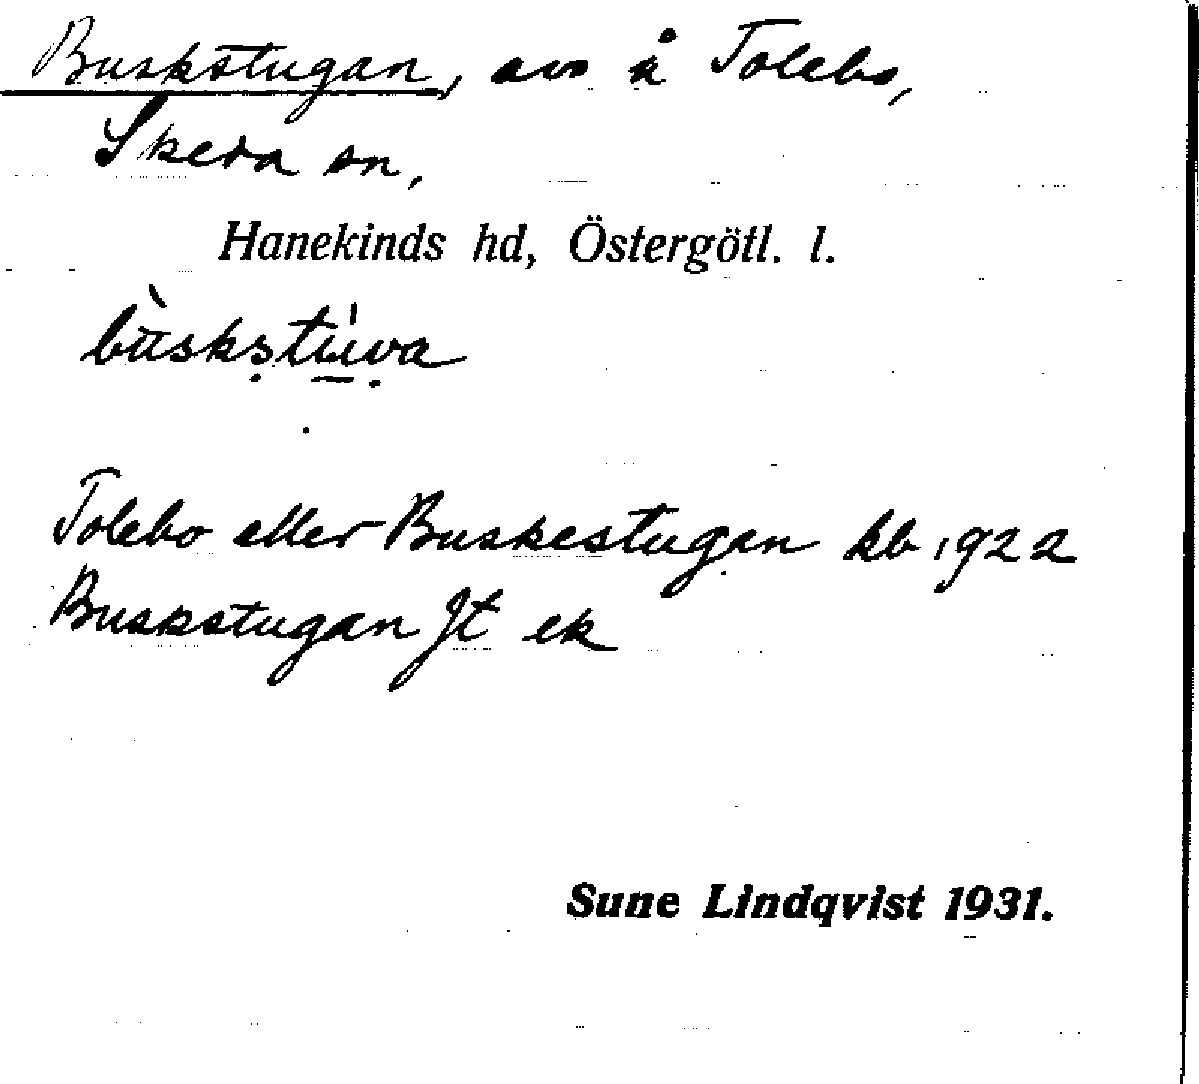 Buskstugan, avs å Tolebo,
Skeda sn,
Hanekinds hd, Östergötl. l.
bùskstúva
Tolebo eller Buskestugan kb 1922
Buskstugan Jt ek
Sune Lindqvist 1931.